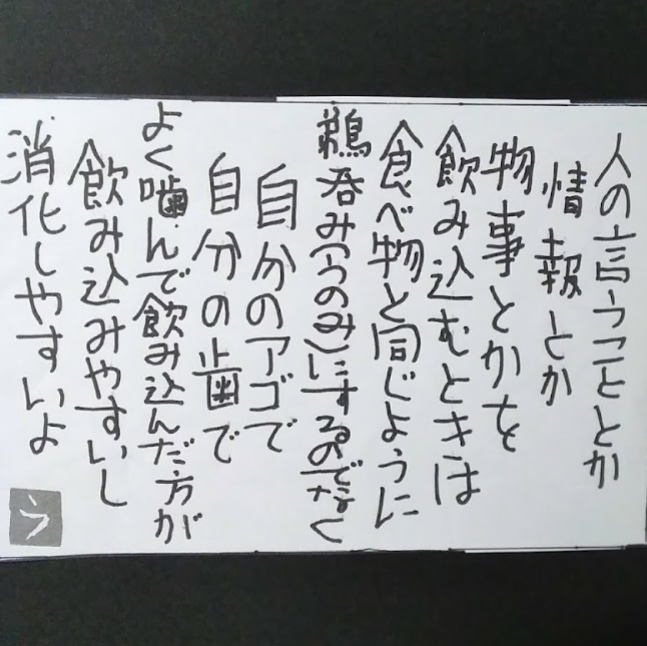 人の言うこととか
情報とか
物事とかを
飲み込むときは
食べ物と同じように
鵜呑み(うのみ)にするのでなく
自分のアゴで
自分の歯で
よく噛んで飲み込んだ方が
飲み込みやすいし
消化しやすいよ
う